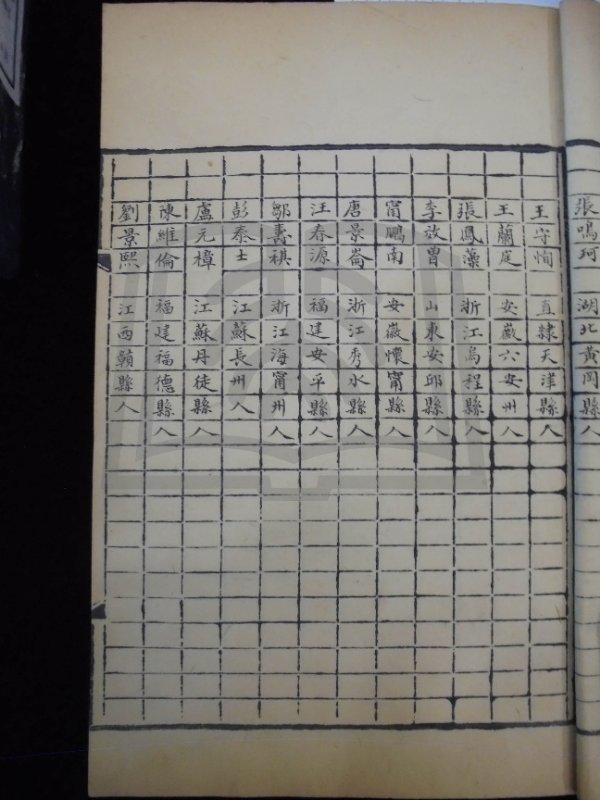 張鳴珂 湖北黃岡縣
王守恂 直隸天津縣人
王蘭庭 安徽六安州人
張鳳藻 浙江烏程縣人
李效曾 山東安邱縣人
甯鵬南 安徽懷甯縣人
唐景崙 浙江秀水縣人
汪春源 福建安平縣人
鄒壽祺 浙江海甯州人
彭泰士 江蘇長州人
盧元樟 江蘇丹徒縣人
陳維倫 福建福德縣人
劉景熙 江西贛縣人